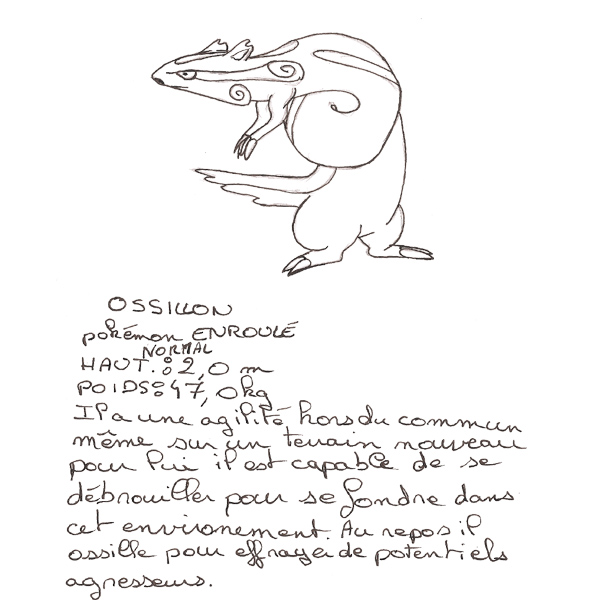 OSSILLON
pokémon ENROULÉ
NORMAL
HAUT.: 2,0 m
POIDS: 47,0kg
Il a une agilité hors du commun
même sur un terrain nouveau
pour lui il est capable de se
débrouiller pour se fondre dans
cet environement. Au repos il
ossille pour effrayer de potentiels
agresseurs.